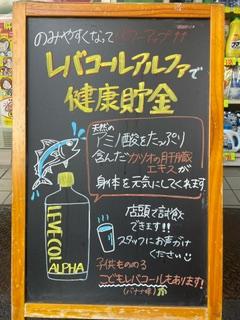 のみやすくなってパワーアップ!!
レバコールアルファで
健康貯金
天然のアミノ酸をたっぷり
含んだカツオの肝臓
エキスが
身体を元気にしてくれます
LEVECOL
ALPHA
店頭で試飲
できます!!
スタッフにお声がけ
ください
子供ものめる
こどもレバコールもあります!
(バナナ味)